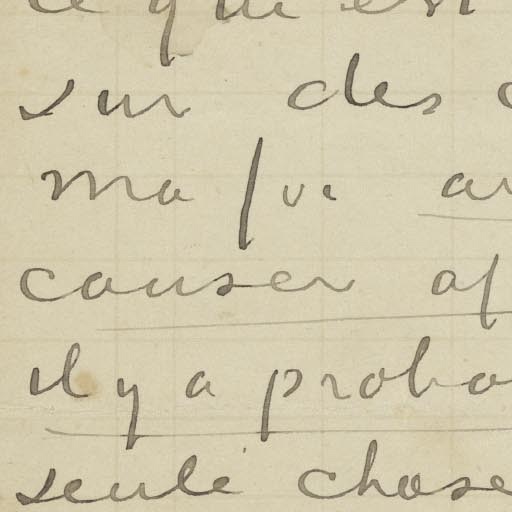 ce qui est
sur des
ma foi
causer
il y a proba
seule chose